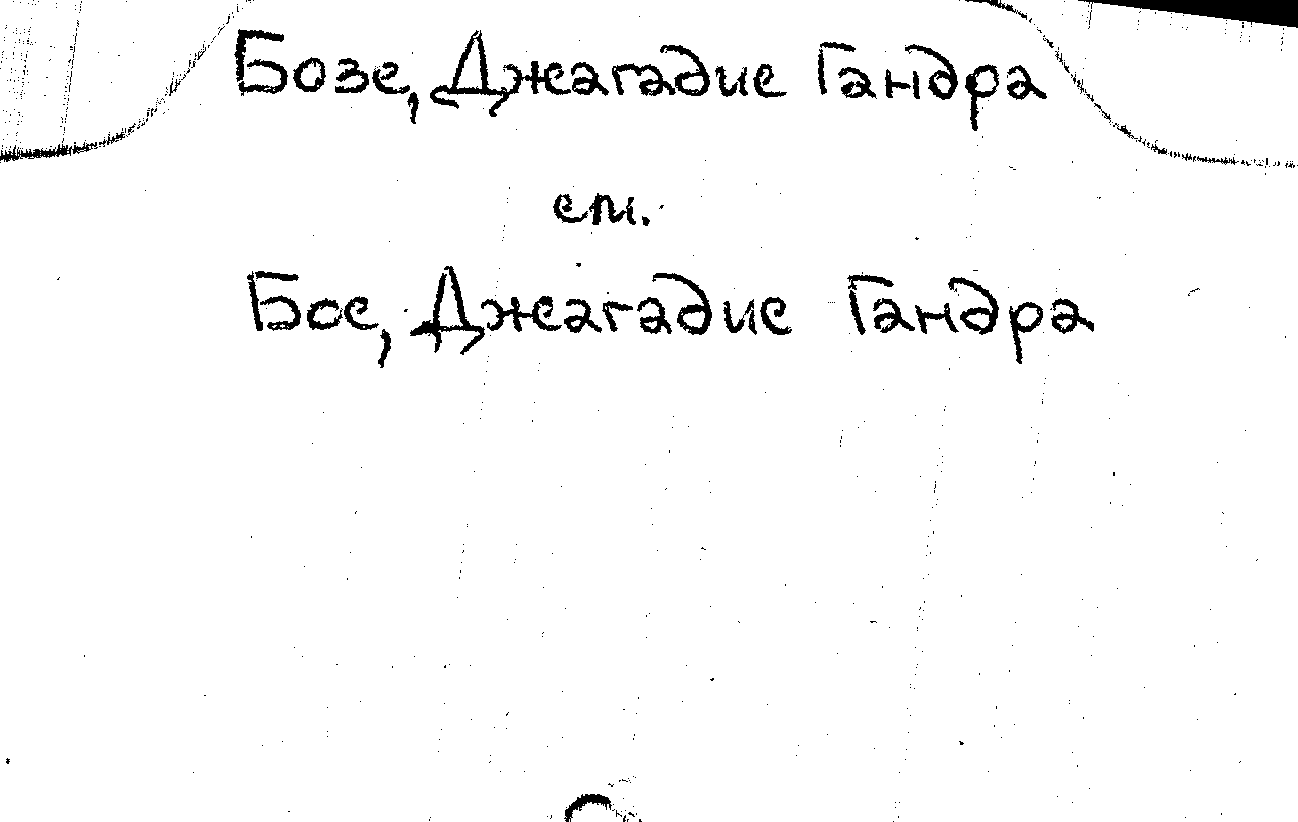 Бозе, Джагадис Гандра
см.
Бос, Джагадис Гандра